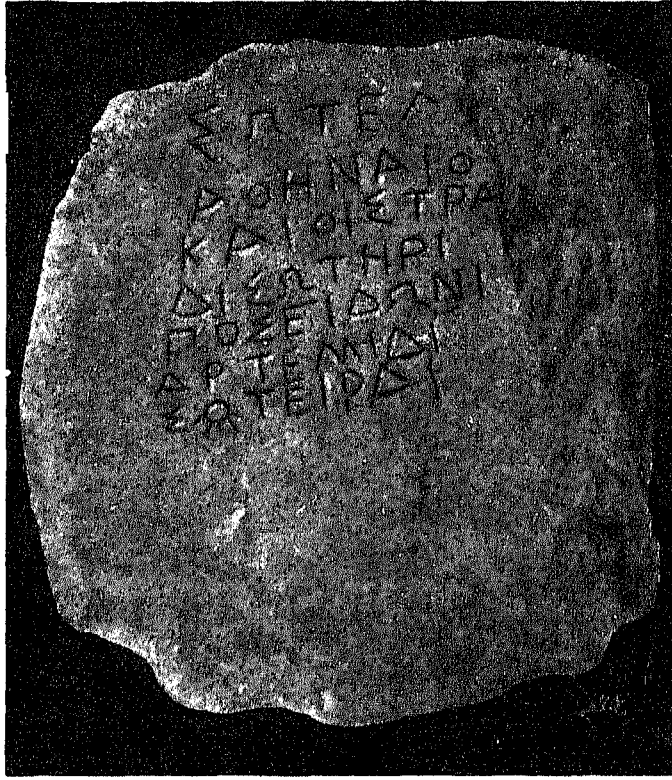 ΣΩΤΕΛ
ΑΘΗΝΑΙΟ
ΚΑΙΟΙΣΤΡΑ
ΔΙΣΩΤΗΡΙ
ΠΟΣΕΙΔΩΝΙ
ΑΡΤΕΜΙΔΙ
ΣΩΤΕΙΡΑΙ